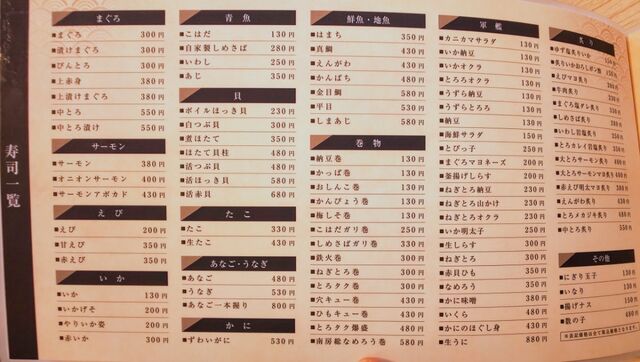 寿司一覧
まぐろ
■まぐろ 300円
■漬けまぐろ 300円
■びんとろ 300円
■上赤身 380円
■上漬けまぐろ 380円
■中とろ 550円
■中とろ漬け 550円
サーモン
■サーモン 380円
■オニオンサーモン 400円
■サーモンアボカド 430円
えび
■えび 200円
■甘えび 350円
■赤えび 350円
いか
■いか 130円
■いかげそ 200円
■やりいか姿 200円
■赤いか 300円
青魚
■こはだ 130円
■自家製しめさば 280円
■いわし 250円
■あじ 350円
貝
■ボイルほっき貝 230円
■白つぶ貝 300円
■煮ほたて 350円
■ほたて貝柱 480円
■活つぶ貝 480円
■活ほっき貝 580円
■活赤貝 680円
たこ
■たこ 330円
■生たこ 430円
あなご・うなぎ
■あなご 480円
■うなぎ 530円
■あなご一本握り 800円
かに
■ずわいがに 530円
鮮魚・地魚
■はまち 350円
■真鯛
■えんがわ
■かんぱち 480円
■金目鯛 580円
■平目 530円
■しまあじ 580円
巻物
■納豆巻 130円
■かっぱ巻 130円
■おしんこ巻 130円
■かんぴょう巻 130円
■梅しそ巻 130円
■こはだガリ巻 300円
■しめさばガリ巻 330円
■鉄火巻 300円
■ねぎとろ巻 300円
■とろタク巻 330円
■穴キュー巻 430円
■ひもキュー巻 430円
■とろタク爆盛 480円
■南房総なめろう巻 580円
軍艦
■カニカマサラダ 130円
■いか納豆 130円
■いかオクラ 130円
■とろろオクラ 130円
■うずら納豆 130円
■うずらとろろ 130円
■納豆 130円
■海鮮サラダ
■とびっ子
■まぐろマヨネーズ 200円
■釜揚げしらす
■ねぎとろ納豆
■ねぎとろ山かけ
■ねぎとろオクラ
■いか明太子
■生しらす 300円
■ねぎとろ 300円
■赤貝ひも
■なめろう
■かに味噌
■いくら
■かにのほぐし身 430円
■生うに 880円
炙り
■ゆず塩炙りいか 150円
■炙りいかおろしポン酢
■えびマヨ炙り
■牛肉炙り
■まぐろ塩ダレ炙り
■しめさば炙り
■いわし岩塩炙り
■とろカレイ岩塩炙り
■大とろサーモン炙り
■大とろサーモンマヨ炙り
■赤えび明太マヨ炙り
■えんがわ炙り
■とろメカジキ炙り
■中とろ炙り 550円
その他
■にぎり玉子 130円
■いなり 130円
■揚げナス 150円
■数の子 480円